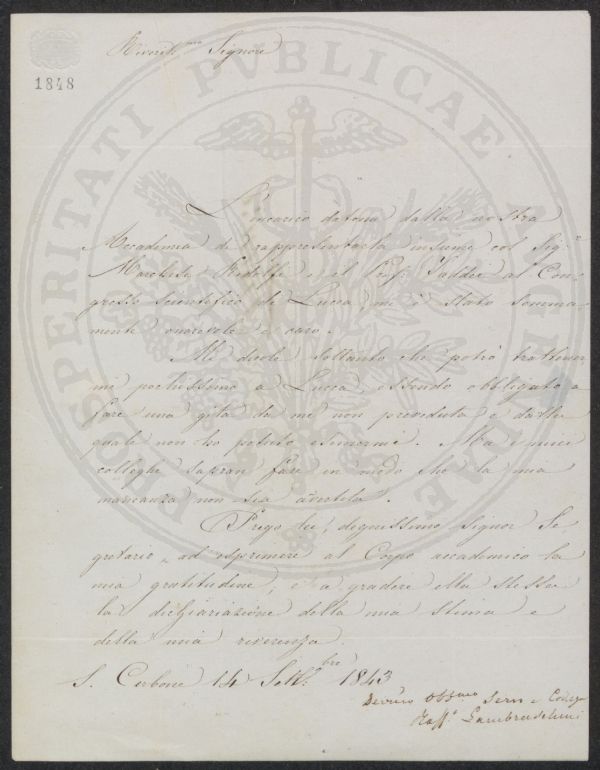 1848
Riverit.mo Signore
L'incarico datomi dalla nostra
Accademia di rappresentarla insieme col Sig.r
Marchese Ridolfi e il Prof. Taddei al Con-
gresso Scientifico di Lucca, mi è stato somma-
mente onorevole e caro.
Mi duole soltanto che potrò trattener-
mi pochissimo a Lucca, essendo obbligato a
fare una gita da me non preveduta e dalla
quale non ho potuto esimermi. Ma i miei
colleghi sapran fare in modo che la mia
mancanza non sia avvertita.
Prego lei, degnissimo Signor Se-
gretario, ad esprimere al Corpo accademico la
mia gratitudine, e a gradire ella stessa
la dichiarazione della mia stima e
della mia riverenza.
S. Cerbone 14 Sett.bre 1843
Dev.mo Obb.mo Serv. e Collega
Raff.o Lambruschini
PROSPERITATI PVBLICAE AVGENDAE